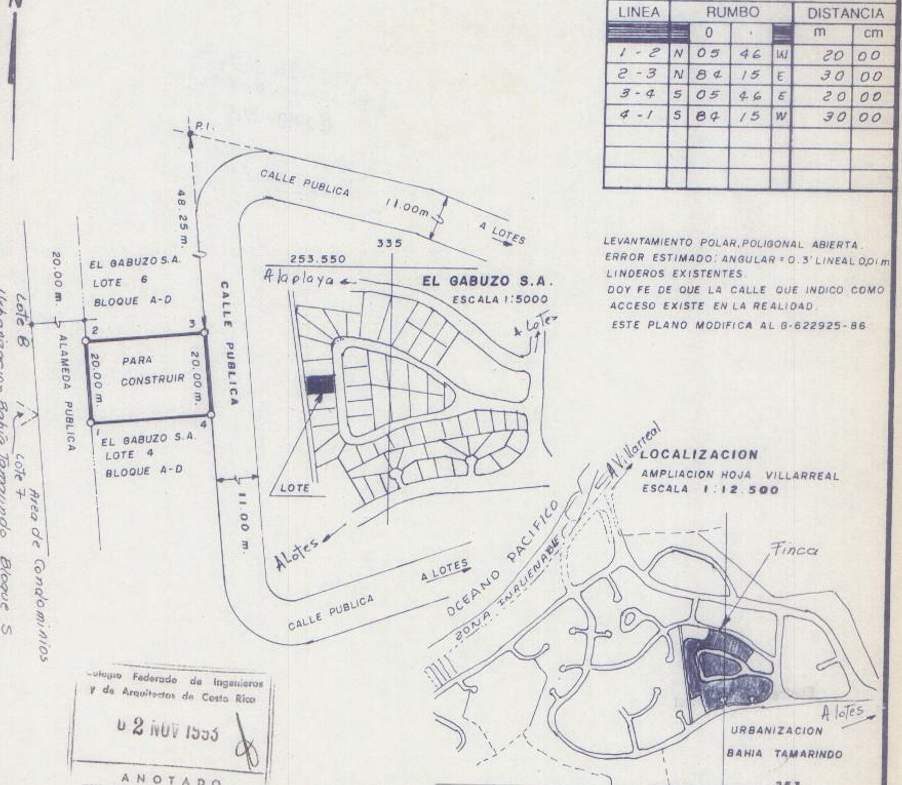 N
LINEA RUMBO DISTANCIA
0 ' m cm
1 - 2 N 05 46 W 20 00
2 - 3 N 84 15 E 30 00
3 - 4 S 05 46 E 20 00
4 - 1 S 84 15 W 30 00
LEVANTAMIENTO POLAR, POLIGONAL ABIERTA.
ERROR ESTIMADO: ANGULAR = 0.3' LINEAL 0,01 m
LINDEROS EXISTENTES.
DOY FE DE QUE LA CALLE QUE INDICO COMO
ACCESO EXISTE EN LA REALIDAD.
ESTE PLANO MODIFICA AL G-622925-86
P.I.
CALLE PUBLICA
11.00m
A LOTES
48.25 m.
20.00 m.
EL GABUZO S.A.
LOTE 6
BLOQUE A-D
2
3
20.00 m.
PARA
CONSTRUIR
20.00 m.
1
4
EL GABUZO S.A.
LOTE 4
BLOQUE A-D
ALAMEDA PUBLICA
CALLE PUBLICA
11.00 m.
CALLE PUBLICA
A LOTES
Lote 8
Lote 7
Area de Condominios
Urbanizacion Bahia Tamarindo Bloque S
335
253.550
A la playa
EL GABUZO S.A.
ESCALA 1:5000
A Lotes
LOTE
A Lotes
LOCALIZACION
AMPLIACION HOJA VILLARREAL
ESCALA 1:12.500
A Villarreal
OCEANO PACIFICO
ZONA INALIENABLE
Finca
A lotes
URBANIZACION
BAHIA TAMARINDO
Colegio Federado de Ingenieros
y de Arquitectos de Costa Rica
02 NOV
ANOTADO